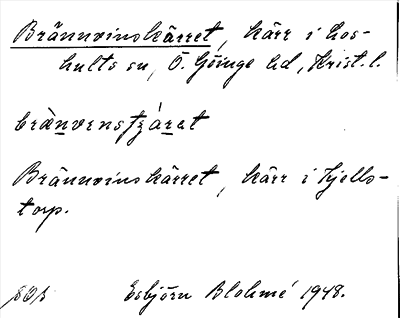 Brännvinskärret, kärr i Los-
hults sn, Ö. Göinge hd, Krist. l.
brännvinskärret, kärr i Kjells-
torp.
Esbjörn Blohmé 1948.